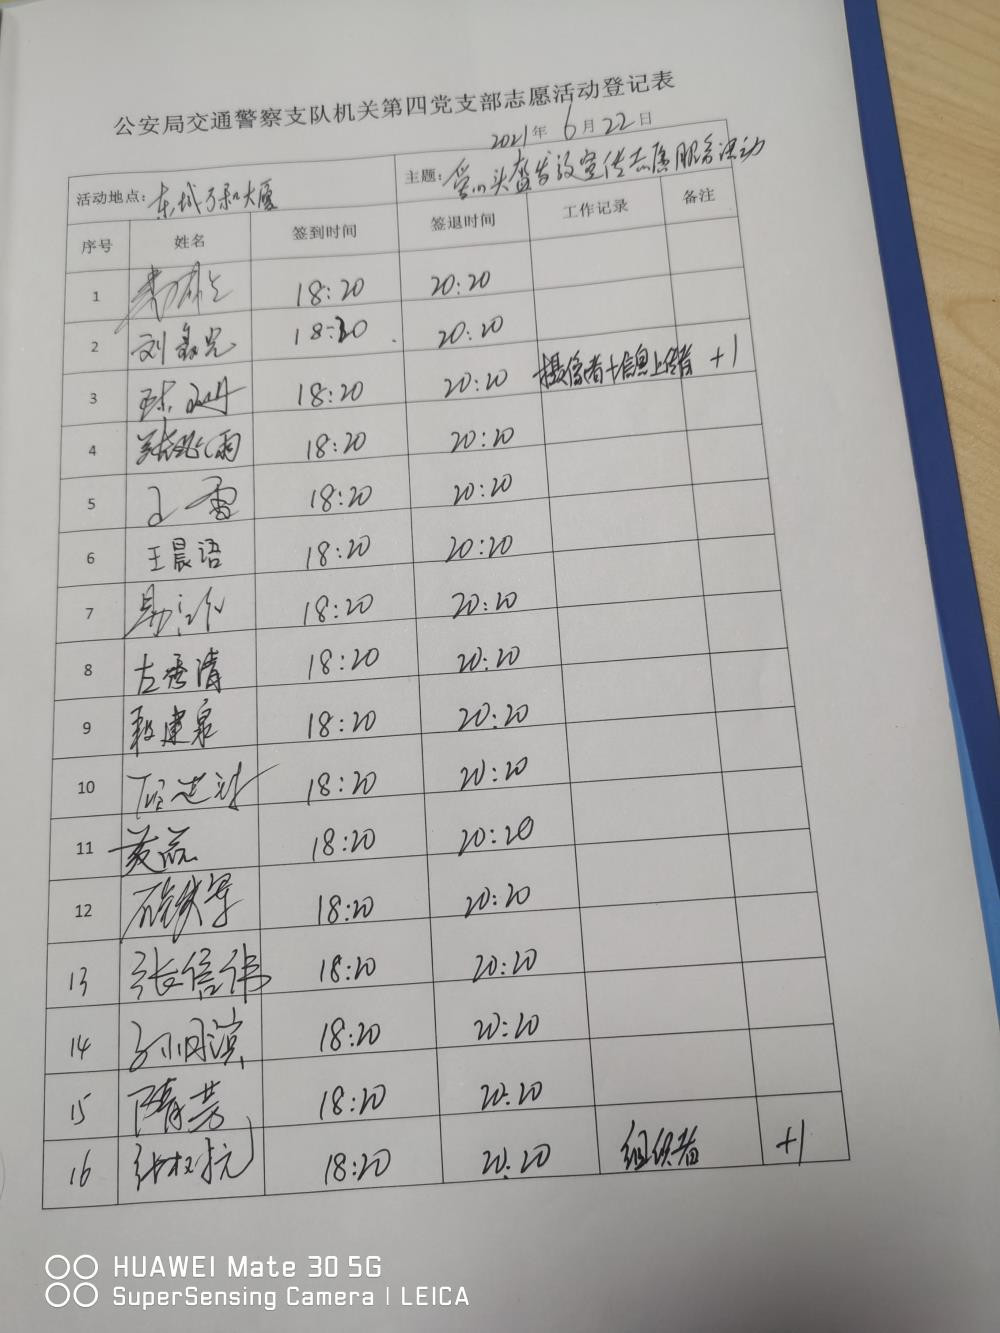 公安局交通警察支队机关第四党支部志愿活动登记表
2021年 6月22日
活动地点: 东城万和大厦 主题: 头盔 宣传志愿服务活动
序号 姓名 签到时间 签退时间 工作记录 备注
1 18:20 20:20
2 刘 18:20 20:20
3 18:20 20:20 摄像者+信息上传者 +1
4 18:20 20:20
5 王雷 18:20 20:20
6 王晨语 18:20 20:20
7 18:20 20:20
8 左秀清 18:20 20:20
9 建泉 18:20 20:20
10 18:20 20:20
11 18:20 20:20
12 18:20 20:20
13 张信伟 18:20 20:20
14 18:20 20:20
15 隋芸 18:20 20:20
16 张权 18:20 20:20 组织者 +1
HUAWEI Mate 30 5G
SuperSensing Camera | LEICA